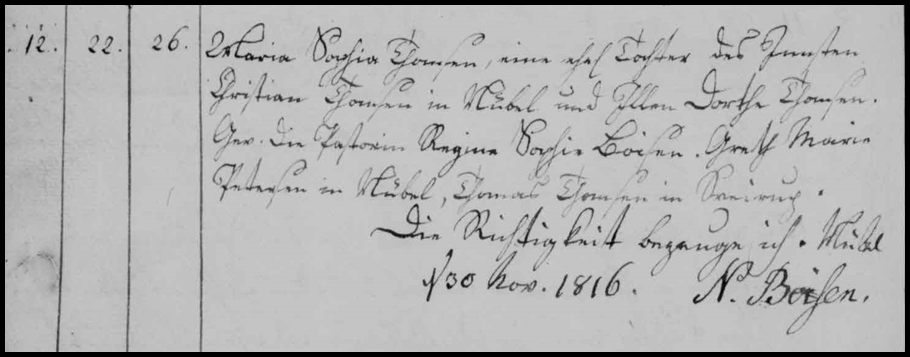 12. 22. 26. Maria Sophia Thomsen, eine ehel Tochter des Innsten
Christian Thomsen in Nübel und Ellen Dorthe Thomsen.
Gev. Die Pastorin Regine Sophie Boisen. Greth Marie
Petersen in Nübel, Thomas Thomsen in
Die Richtigkeit bezeuge ich. Nübel
30 Nov. 1816. N. Boisen.